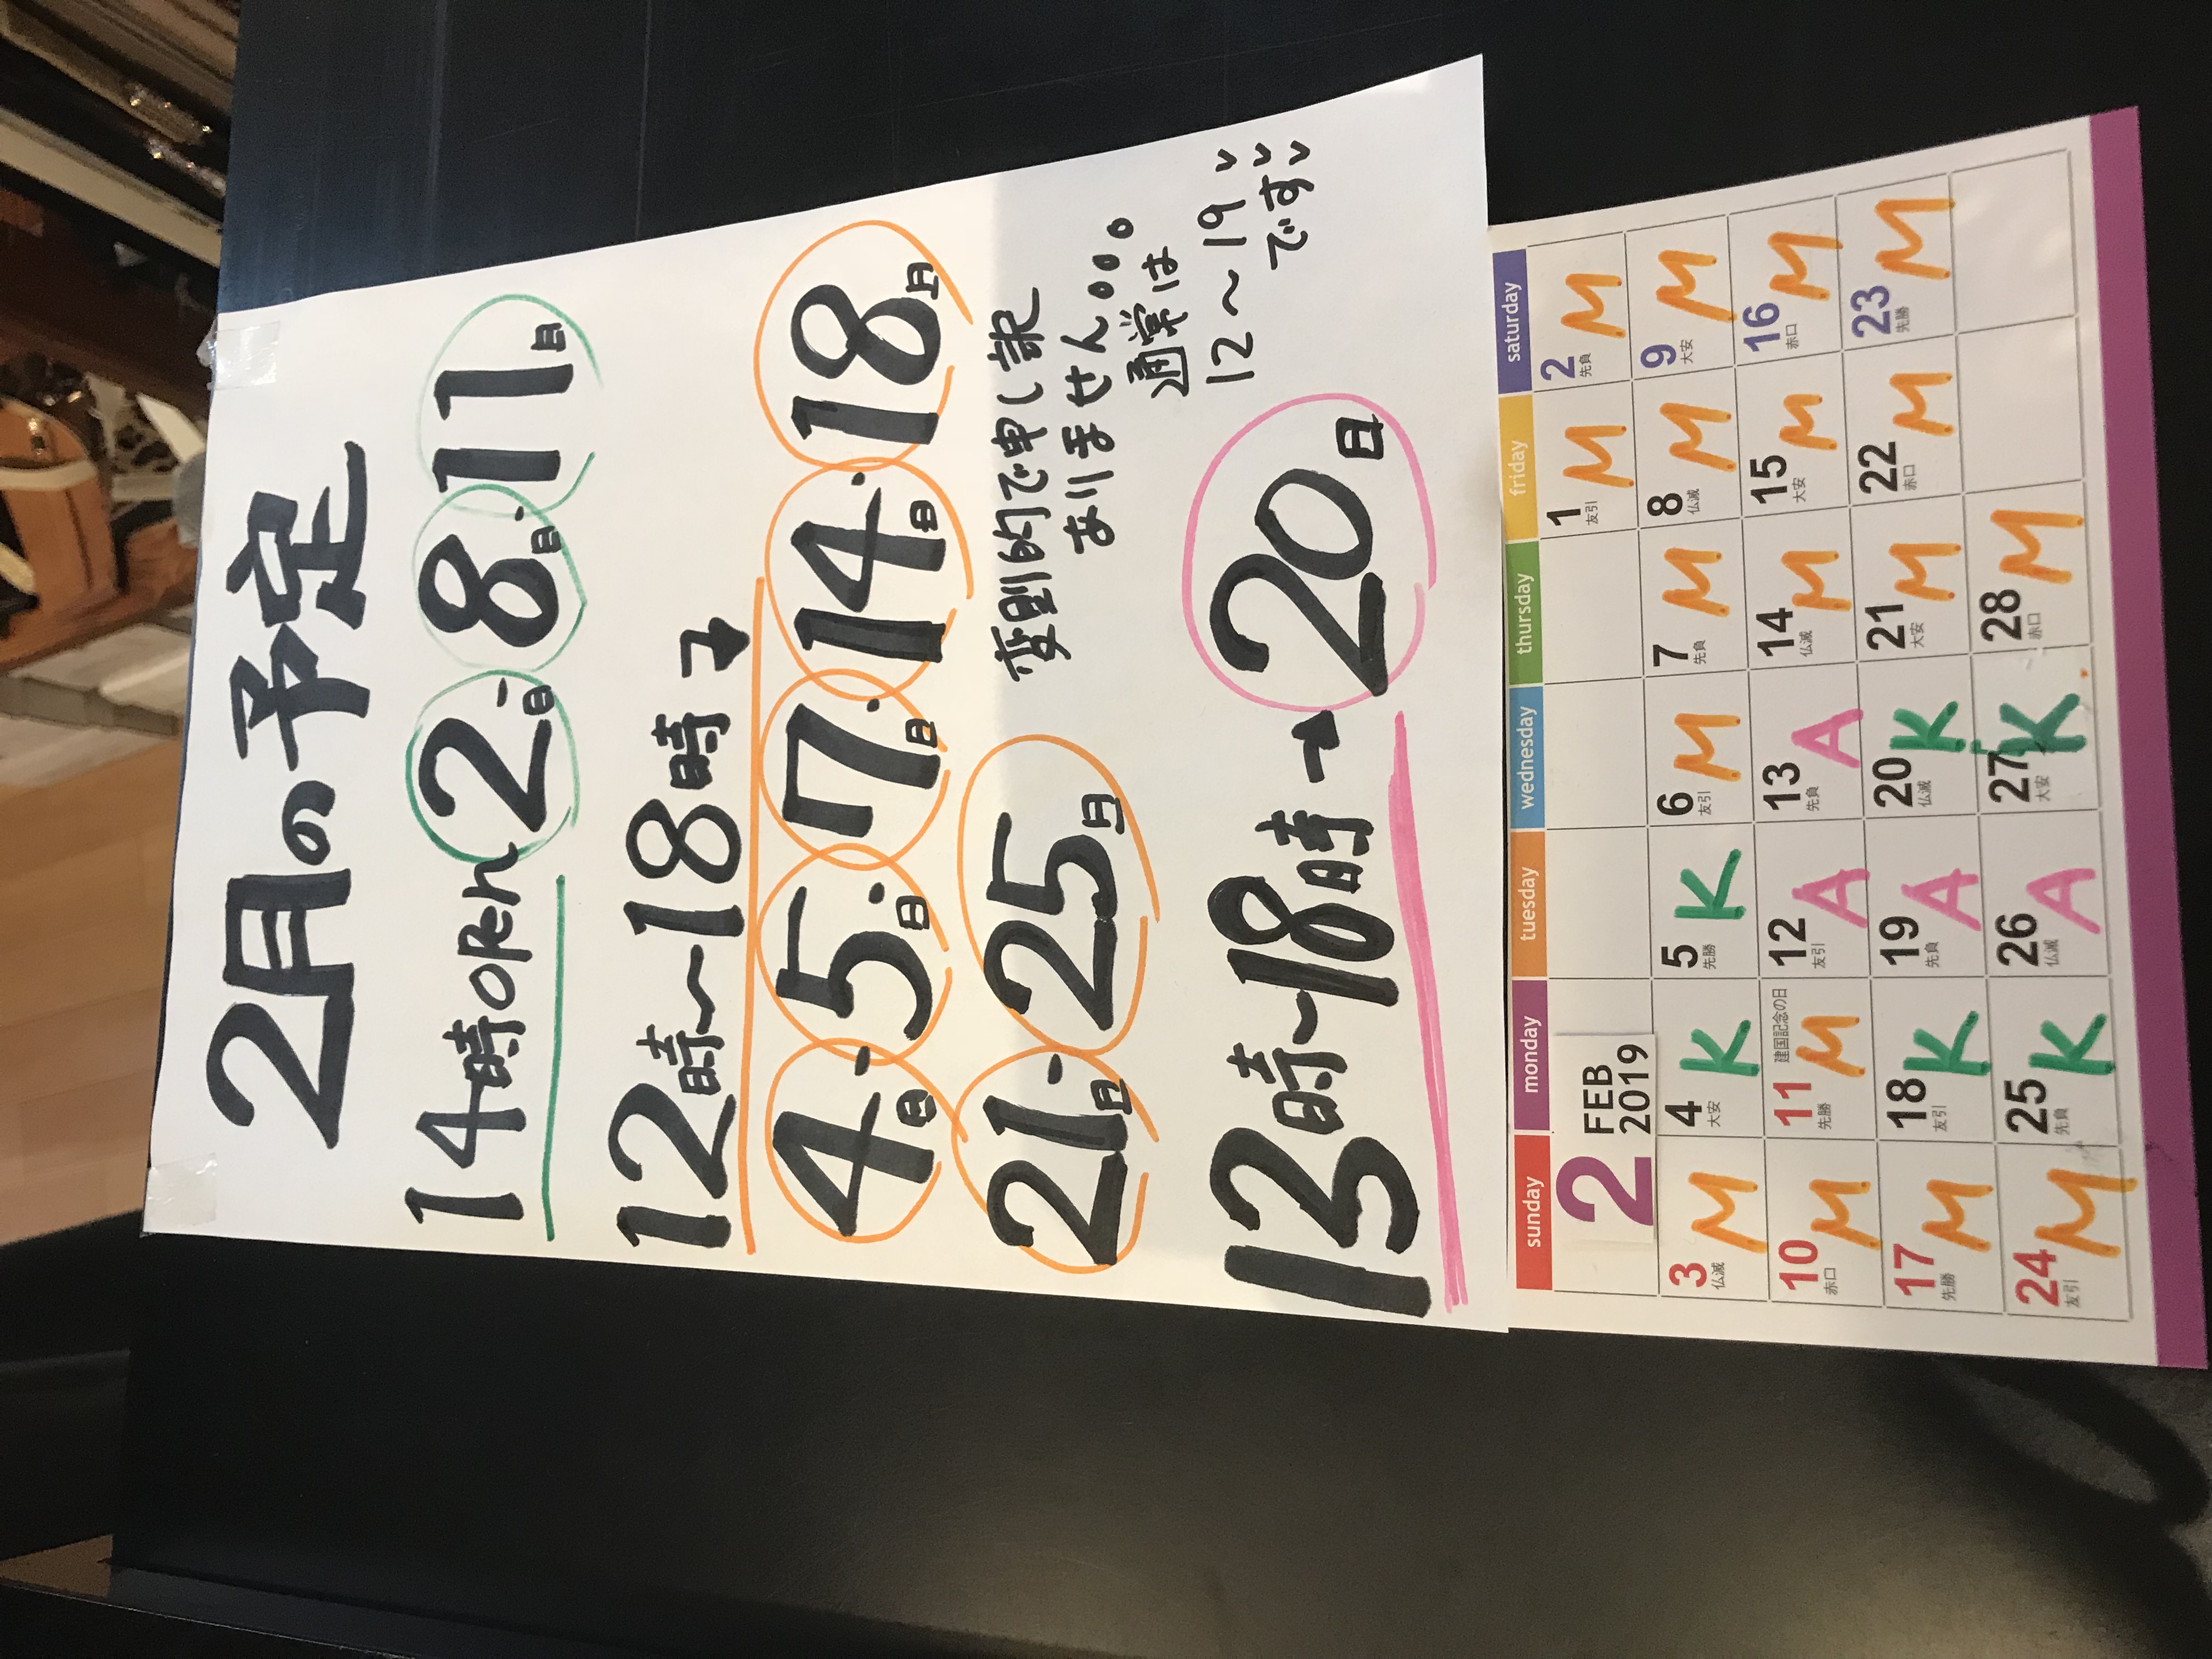 2月の予定
14時open 2日・8日・11日
12時〜18時→
4日・5日・7日・14日・18日
21日・25日
変則的で申し訳
ありません。。。
通常は
12〜19
です
13時〜18時→20日
sunday monday tuesday wednesday thursday friday saturday
2 FEB 2019 1 友引 M 2 先負 M
3 仏滅 M 4 大安 K 5 先勝 K 6 友引 M 7 先負 M 8 仏滅 M 9 大安 M
10 赤口 M 11 先勝 建国記念の日 M 12 友引 A 13 先負 A 14 仏滅 M 15 大安 M 16 赤口 M
17 先勝 M 18 友引 K 19 先負 A 20 仏滅 K 21 大安 M 22 赤口 M 23 先勝 M
24 友引 M 25 先負 K 26 仏滅 A 27 大安 K 28 赤口 M